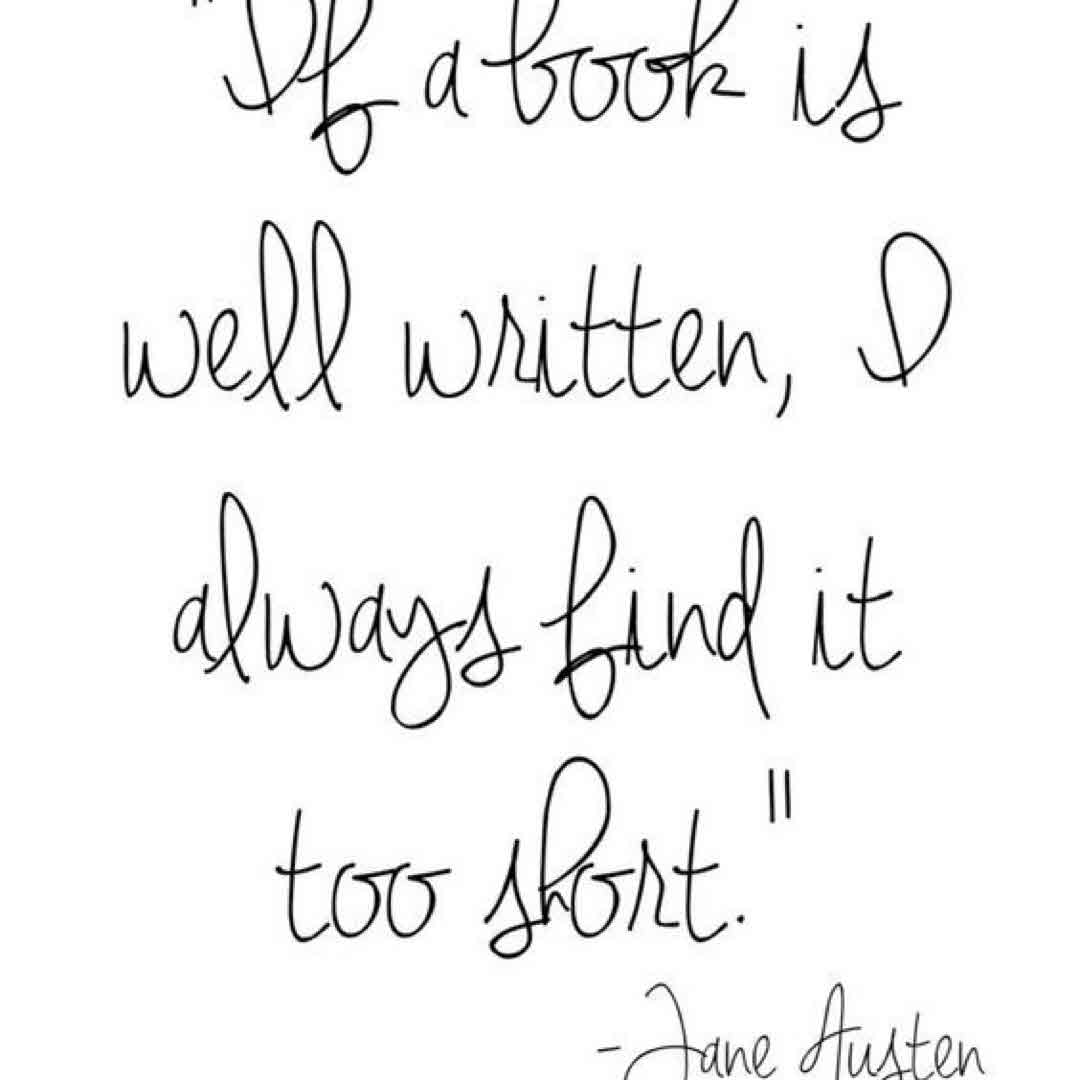 "If a book is
well written, I
always find it
too short."
-Jane Austen